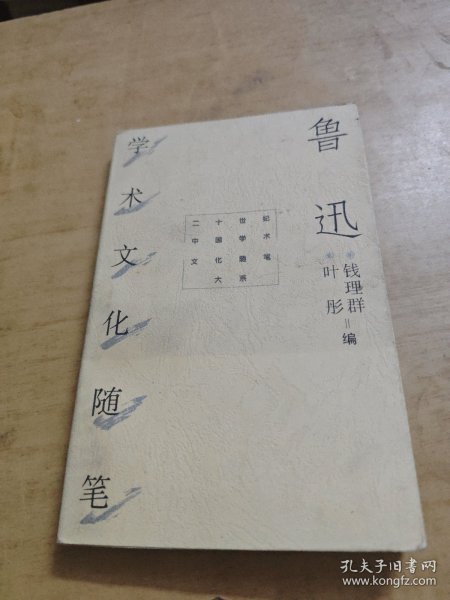 鲁迅
钱理群
叶彤
编
二十世纪
中国学术
文化随笔
大系
学术文化随笔
孔夫子旧书网
www.kongfz.com